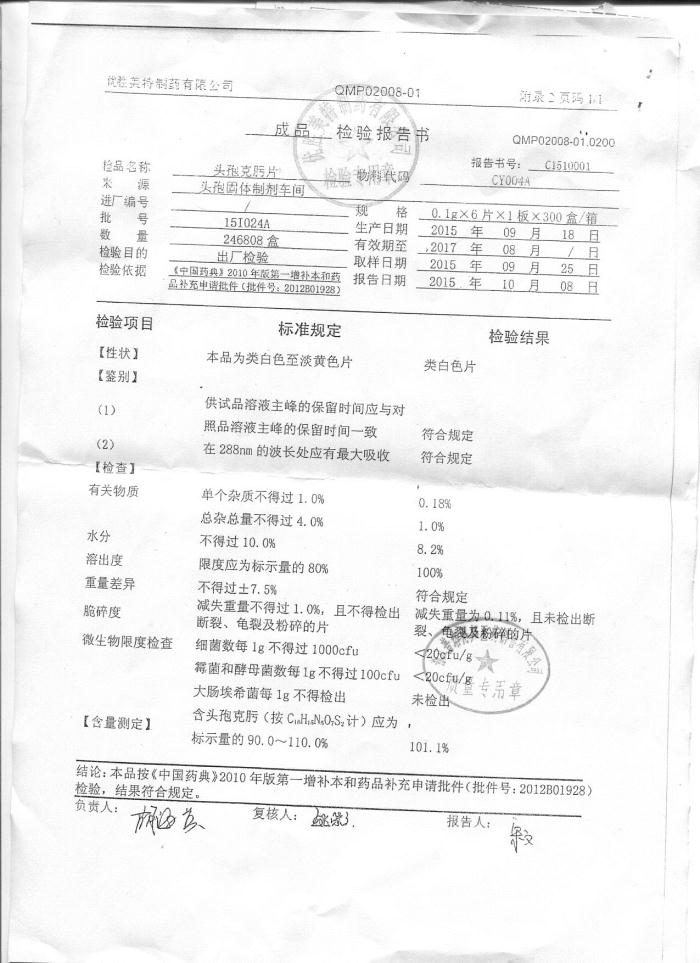 优胜美特制药有限公司 QMP02008-01 附录2页码1/1
成品 检验报告书 QMP02008-01.0200
报告书号: C1510001
检品名称 头孢克肟片 物料代码 CY004A
来源 头孢固体制剂车间
进厂编号 / 规格 0.1g×6片×1板×300盒/箱
批号 15I024A 生产日期 2015 年 09 月 18 日
数量 246808 盒 有效期至 2017 年 08 月 / 日
检验目的 出厂检验 取样日期 2015 年 09 月 25 日
检验依据 《中国药典》2010年版第一增补本和药品补充申请批件(批件号: 2012B01928) 报告日期 2015 年 10 月 08 日
检验项目 标准规定 检验结果
【性状】 本品为类白色至淡黄色片 类白色片
【鉴别】
(1) 供试品溶液主峰的保留时间应与对
照品溶液主峰的保留时间一致 符合规定
(2) 在288nm的波长处应有最大吸收 符合规定
【检查】
有关物质 单个杂质不得过1.0% 0.18%
总杂总量不得过4.0% 1.0%
水分 不得过10.0% 8.2%
溶出度 限度应为标示量的80% 100%
重量差异 不得过±7.5% 符合规定
脆碎度 减失重量不得过1.0%，且不得检出 减失重量为0.11%，且未检出断
断裂、龟裂及粉碎的片 裂、龟裂及粉碎的片
微生物限度检查 细菌数每1g不得过1000cfu <20cfu/g
霉菌和酵母菌数每1g不得过100cfu <20cfu/g
大肠埃希菌每1g不得检出 未检出
【含量测定】 含头孢克肟(按C₁₆H₁₅N₅O₇S₂计)应为，
标示量的90.0~110.0% 101.1%
结论: 本品按《中国药典》2010年版第一增补本和药品补充申请批件(批件号: 2012B01928)
检验，结果符合规定。
负责人: 复核人: 报告人:
检验专用章
质量专用章